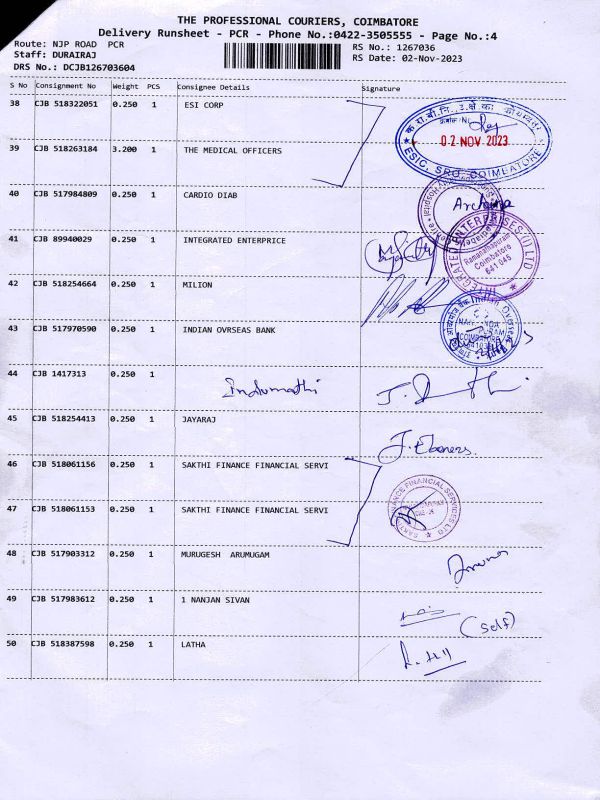 THE PROFESSIONAL COURIERS, COIMBATORE
Delivery Runsheet - PCR - Phone No.:0422-3505555 - Page No.:4
Route: NJP ROAD PCR
RS No.: 1267036
Staff: DURAIRAJ
RS Date: 02-Nov-2023
DRS No.: DCJB126703604
S No Consignment No Weight PCS Consignee Details Signature
38 CJB 518322051 0.250 1 ESI CORP
02 NOV 2023
ESIC, SRO, COIMBATORE
39 CJB 518263184 3.200 1 THE MEDICAL OFFICERS
40 CJB 517984809 0.250 1 CARDIO DIAB
Archana
41 CJB 89940029 0.250 1 INTEGRATED ENTERPRICE
INTEGRATED ENTERPRISES (I) LTD
Ramanathapuram
Coimbatore
641 045
42 CJB 518254664 0.250 1 MILION
43 CJB 517970590 0.250 1 INDIAN OVRSEAS BANK
Indian Overseas
COIMBATORE
44 CJB 1417313 0.250 1 Indumathi
45 CJB 518254413 0.250 1 JAYARAJ
J. Ebaners
46 CJB 518061156 0.250 1 SAKTHI FINANCE FINANCIAL SERVI
47 CJB 518061153 0.250 1 SAKTHI FINANCE FINANCIAL SERVI
SAKTHI FINANCE FINANCIAL SERVICES LTD
48 CJB 517903312 0.250 1 MURUGESH ARUMUGAM
49 CJB 517983612 0.250 1 1 NANJAN SIVAN
(self)
50 CJB 518387598 0.250 1 LATHA